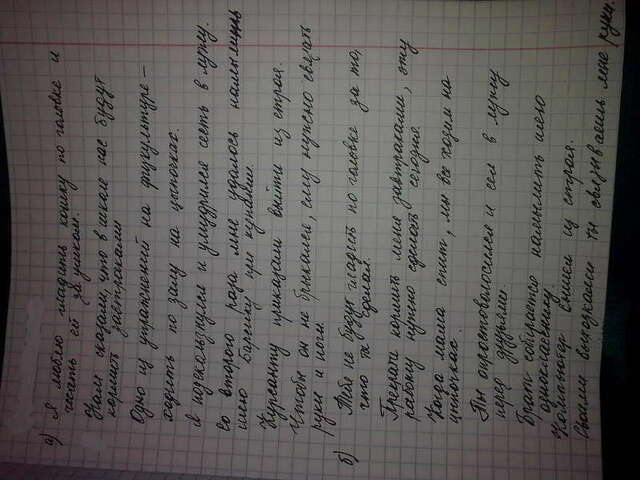 а) Я люблю гладить кошку по головке и
чесать её за ушком.
Нам сказали, что в школе нас будут
кормить завтраками
Одно из упражнений на физкультуре –
ходить по залу на цыпочках.
Я подскользнулся и умудрился сесть в лужу.
Со второго раза мне удалось намылить
шею барсику при купании.
Курсанту приказали выйти из строя.
Чтобы он не брыкался, ему нужно связать
руки и ноги.
б) Тебя не будут гладить по головке за то,
что ты сделал.
Прекрати кормить меня завтраками, эту
работу нужно сделать сегодня.
Когда мама спит, мы все ходим на
цыпочках.
Ты опростоволосился и сел в лужу
перед друзьями.
Брат собирается намылить шею
однокласснику.
Компьютер вышел из строя.
Своими вопросами ты связываешь мне руки.